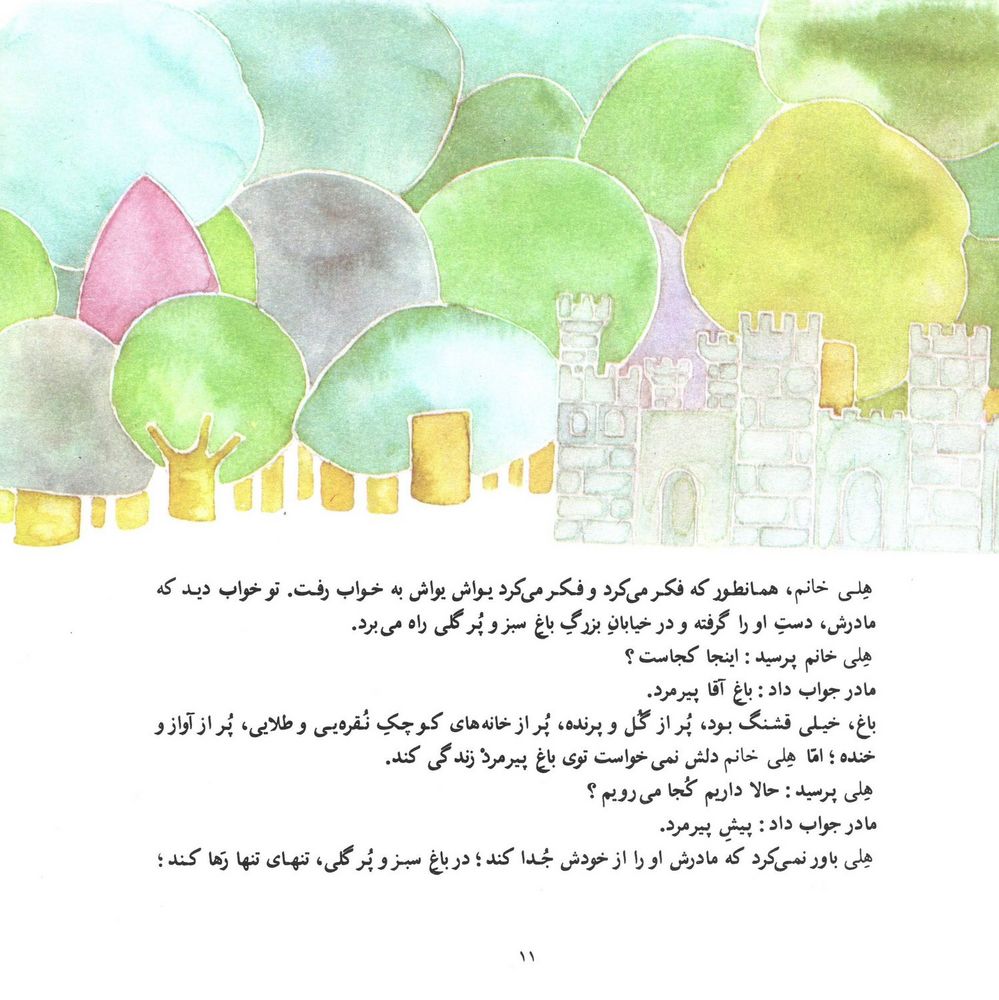 هِلی خانم، همانطور که فکر می‌کرد و فکر می‌کرد یواش یواش به خواب رفت. تو خواب دید که
مادرش، دستِ او را گرفته و در خیابانِ بزرگِ باغِ سبز و پُر گلی راه می‌برد.
هِلی خانم پرسید: اینجا کجاست؟
مادر جواب داد: باغِ آقا پیرمرد.
باغ، خیلی قشنگ بود، پُر از گُل و پرنده، پُر از خانه‌های کوچکِ نُقره‌یی و طلایی، پُر از آواز و
خنده؛ امّا هِلی خانم دلش نمی‌خواست توی باغِ پیرمردْ زندگی کند.
هِلی پرسید: حالا داریم کُجا می‌رویم؟
مادر جواب داد: پیشِ پیرمرد.
هِلی باور نمی‌کرد که مادرش او را از خودش جُدا کند؛ در باغِ سبز و پُر گلی، تنهای تنها رَها کند؛
۱۱